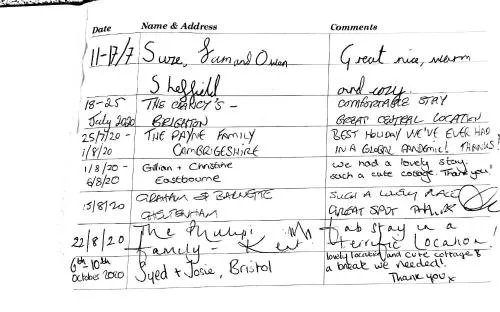 Date Name & Address Comments
11-17/7 Suze, Sam and Owen Great nice, warm
Sheffield and cozy.
18-25 THE CLANCY'S - COMFORTABLE STAY
July 2020 BRIGHTON GREAT CENTRAL LOCATION
25/7/20 - THE PAYNE FAMILY BEST HOLIDAY WE'VE EVER HAD
1/8/20 CAMBRIGESHIRE IN A GLOBAL PANDEMIC! THANKS!
1/8/20 - Gillian + Christine We had a lovely stay.
8/8/20 Eastbourne such a cute cottage. Thank you!
15/8/20 GRAHAM & SUCH A LOVELY PLACE
CHELTENHAM GREAT SPOT THANKS
22/8/20 The Philips Fab stay in a
Family - Kent terrific location!
6th-10th lovely location and cute cottage &
October 2020 Syed + Josie, Bristol a break we needed!
Thank you x